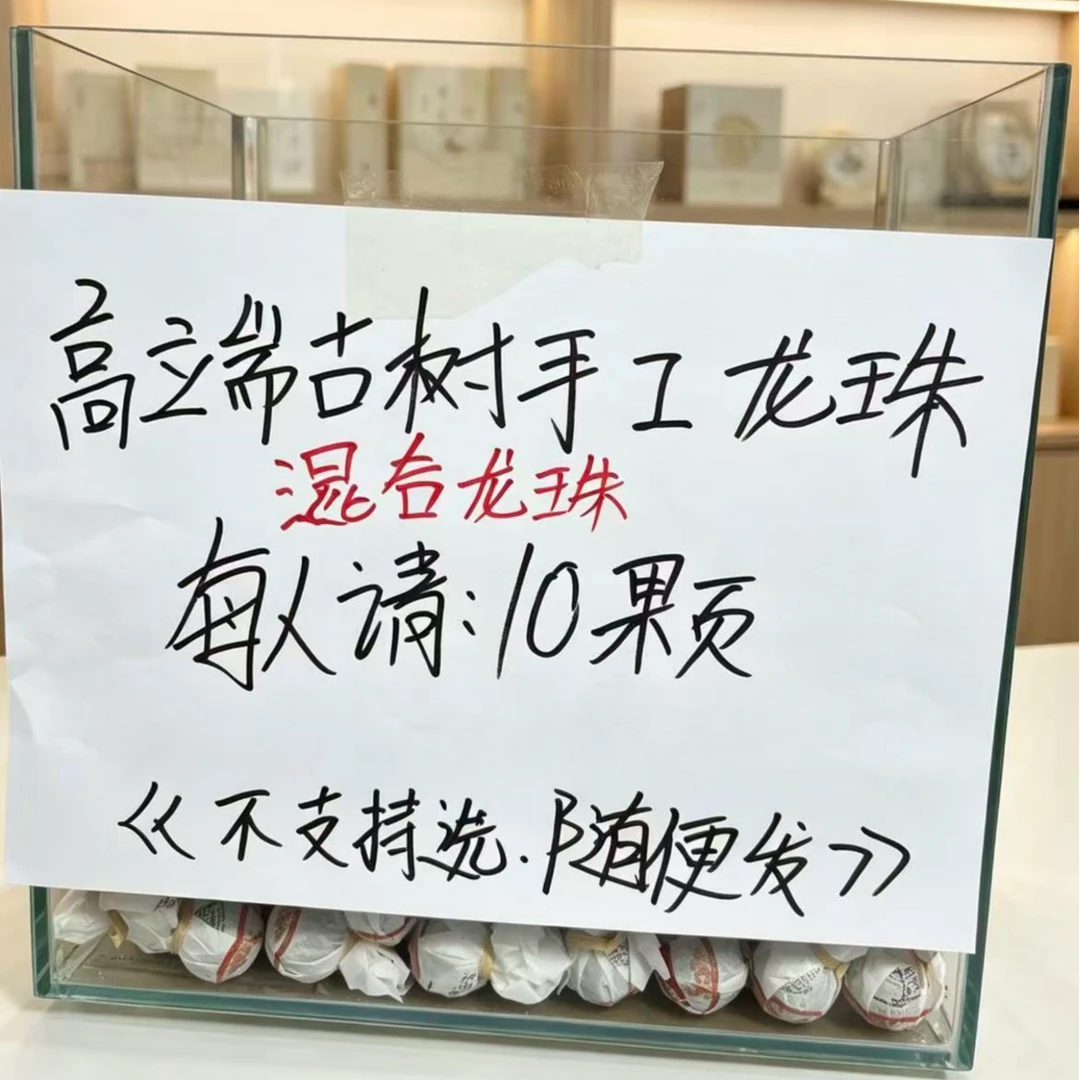 高端古树手工龙珠
混合龙珠
每人请:10颗
《不支持选.随便发》